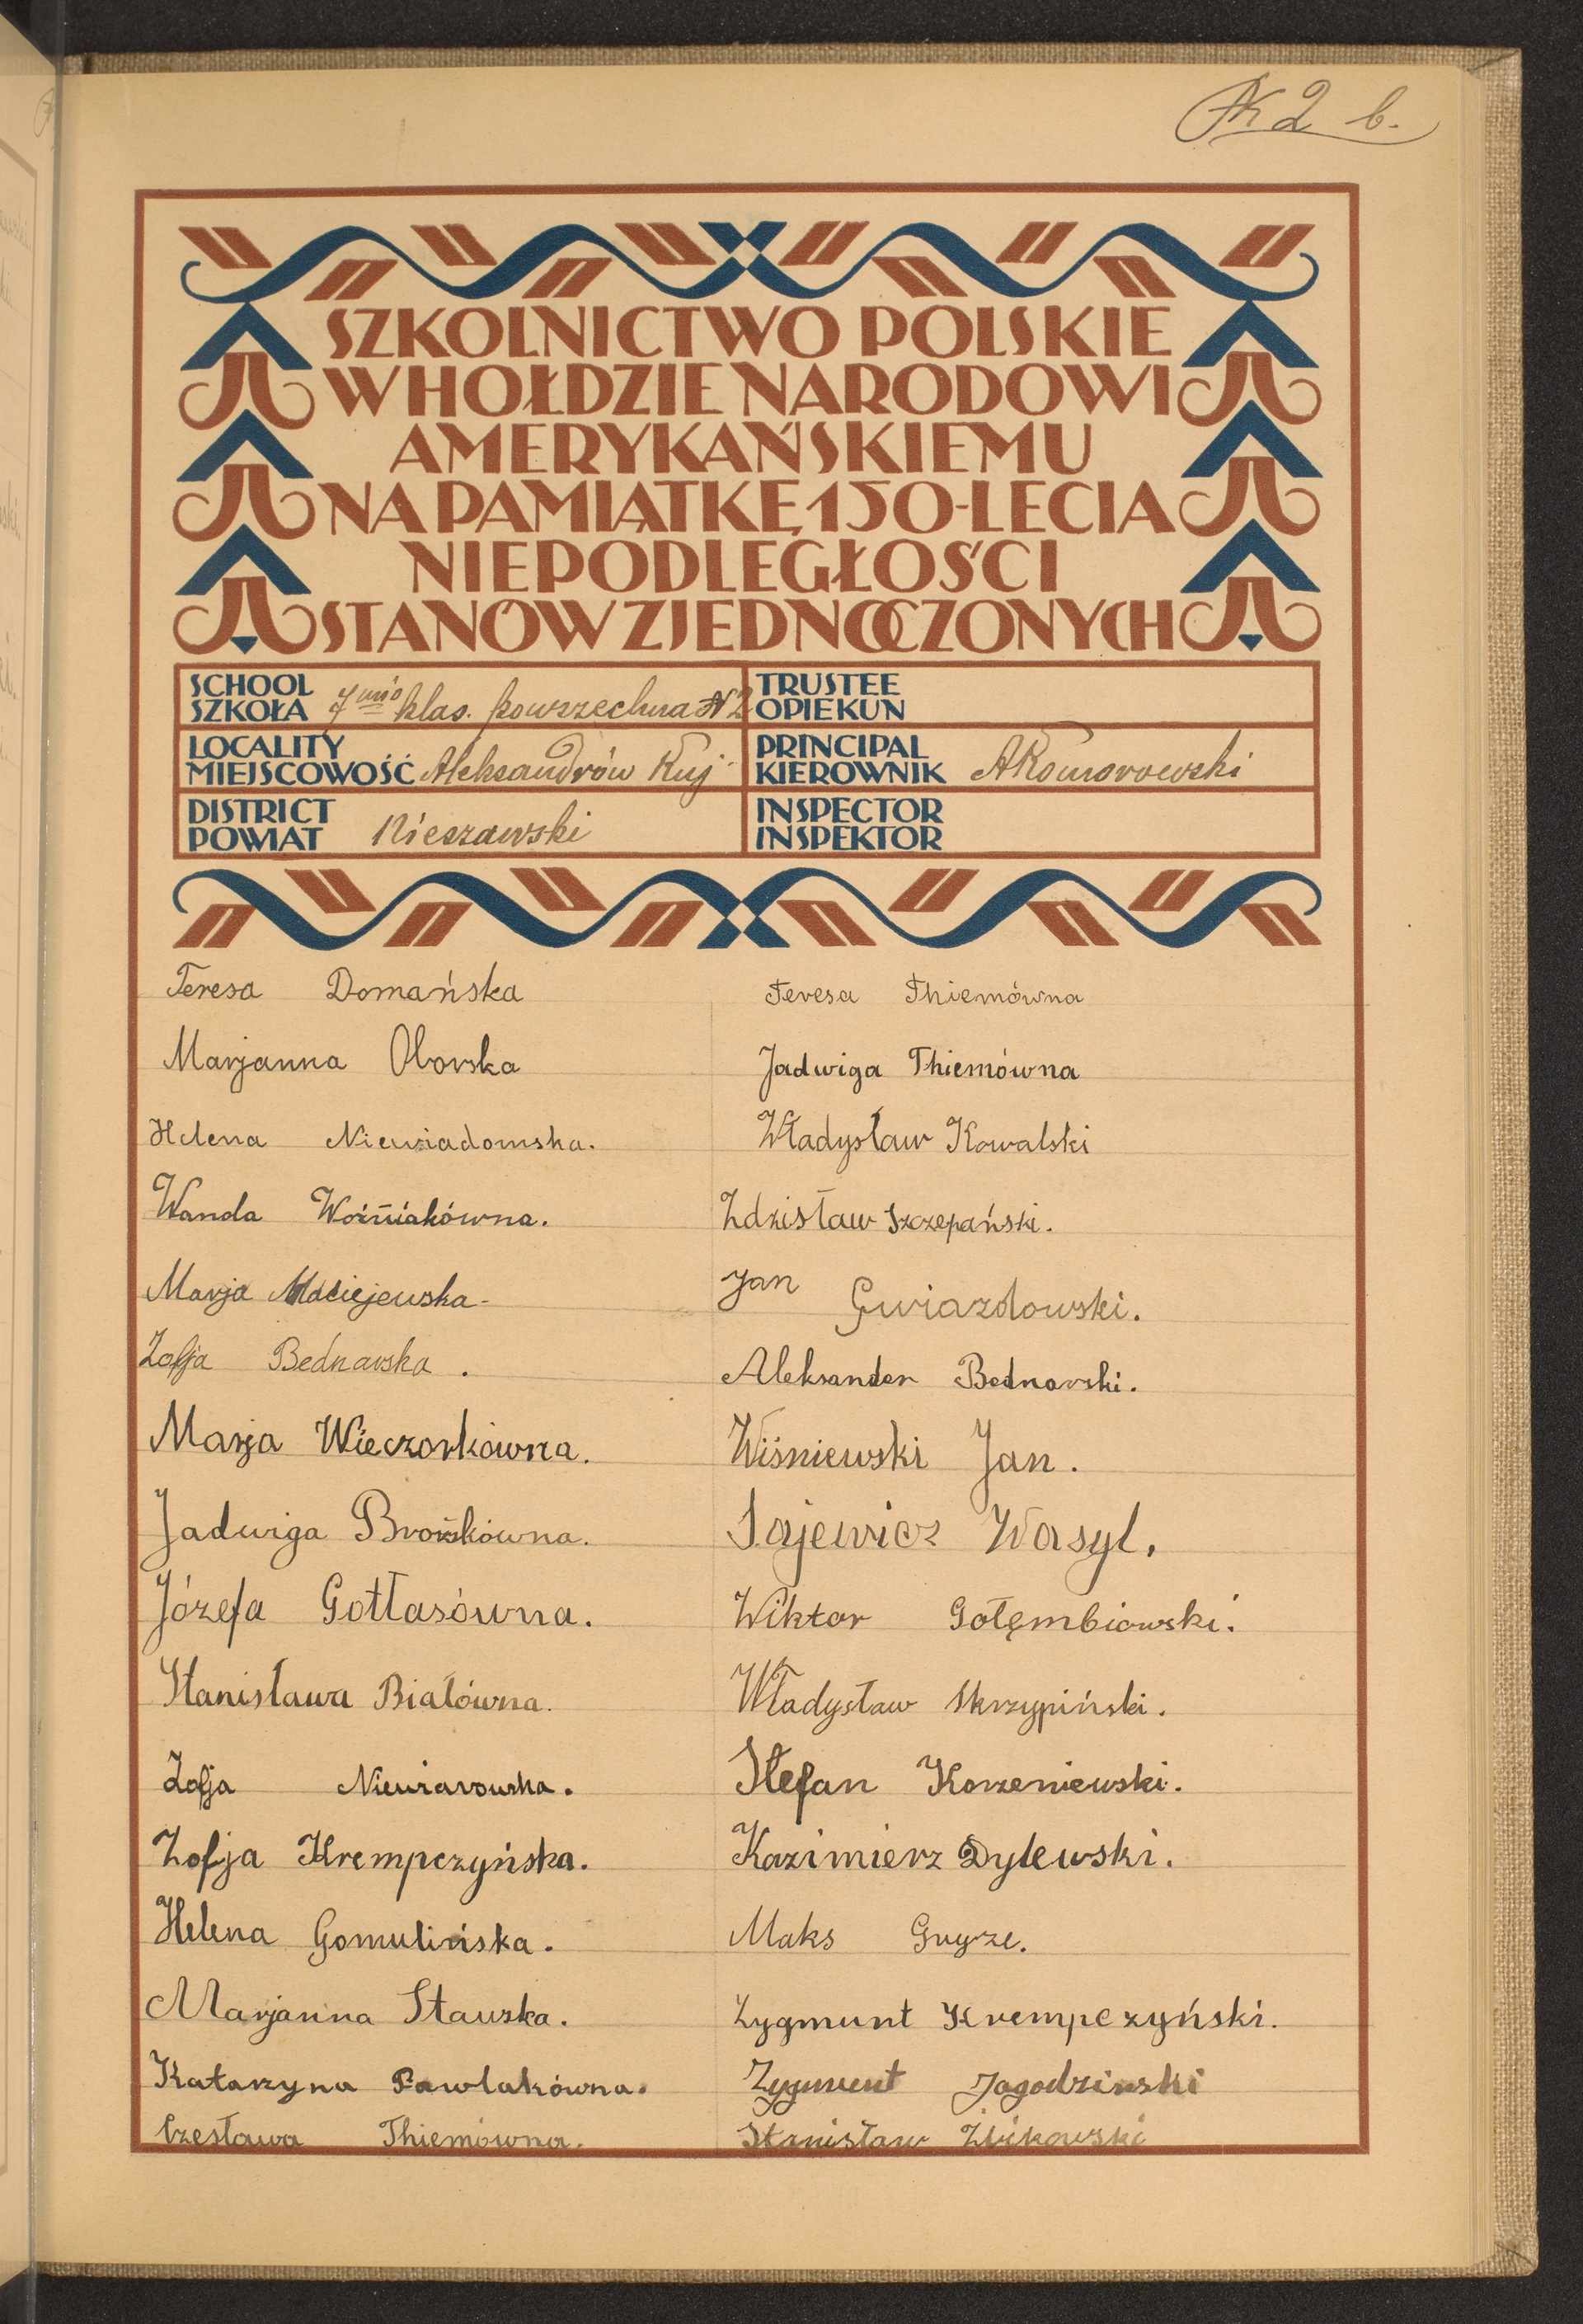 № 2 b.
SZKOLNICTWO POLSKIE
W HOŁDZIE NARODOWI
AMERYKAŃSKIEMU
NA PAMIĄTKĘ 150-LECIA
NIEPODLEGŁOŚCI
STANÓW ZJEDNOCZONYCH
SCHOOL
SZKOŁA 7mio klas. powszechna № 2
TRUSTEE
OPIEKUN
LOCALITY
MIEJSCOWOŚĆ Aleksandrów Kuj.
PRINCIPAL
KIEROWNIK AKomorowski
DISTRICT
POWIAT Nieszawski
INSPECTOR
INSPEKTOR
Teresa Domańska
Marjanna Oborska
Helena Niewiadomska.
Wanda Woźniakówna.
Marja Maciejewska
Zofja Bednarska.
Marja Wieczorkówna.
Jadwiga Brożkówna.
Józefa Gottasówna.
Stanisława Białówna.
Zofja Niewiarowska.
Zofja Krempczyńska.
Helena Gomulińska.
Marjanna Stauska.
Katarzyna Pawlakówna.
Czesława Thiemówna.
Teresa Thiemówna
Jadwiga Thiemówna
Władysław Kowalski
Zdzisław Szczepański.
Jan Gwiazdowski.
Aleksander Bednarski.
Wiśniewski Jan.
Sajewicz Wasyl.
Wiktor Gołęmbiowski.
Władysław Skrzypiński.
Stefan Korzeniewski.
Kazimierz Dylewski.
Maks Gryze.
Zygmunt Krempczyński.
Zygmunt Jagodzinski
Stanisław Żbikowski